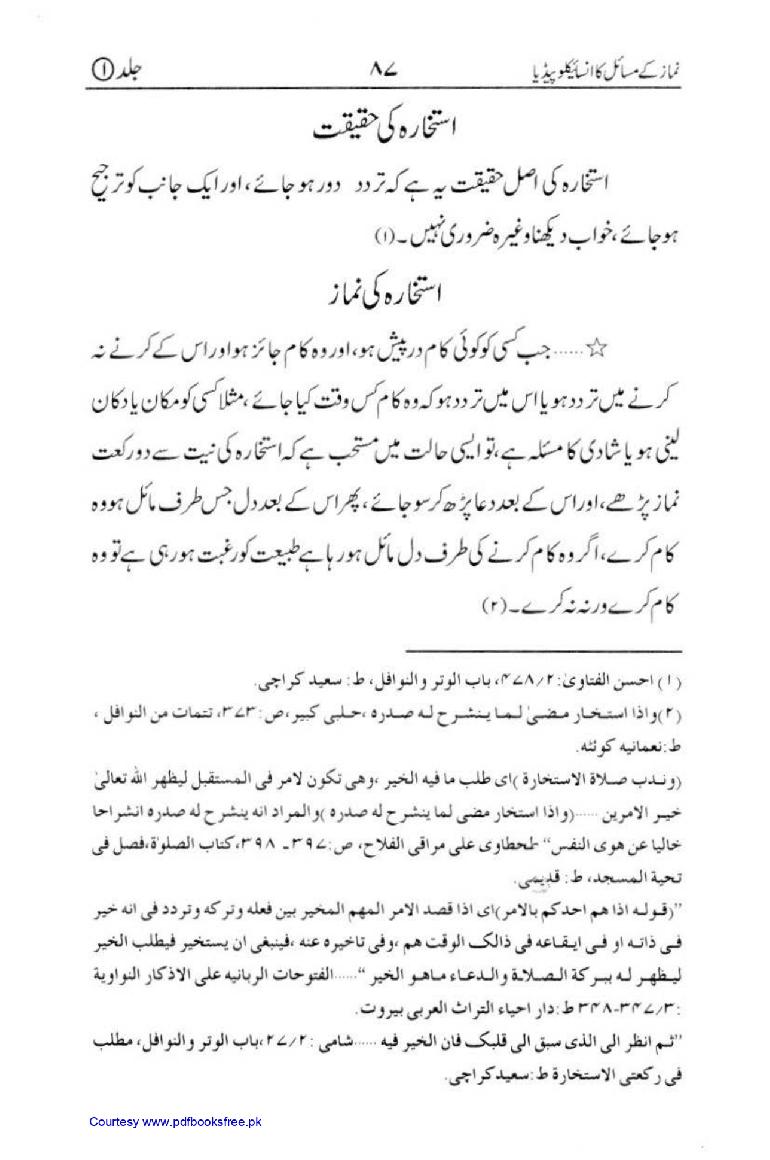 نماز کے مسائل کا انسائیکلوپیڈیا ۸۷ جلد ①
استخارہ کی حقیقت
استخارہ کی اصل حقیقت یہ ہے کہ تردد دور ہو جائے، اور ایک جانب کو ترجیح
ہو جائے، خواب دیکھنا وغیرہ ضروری نہیں۔(۱)
استخارہ کی نماز
☆...... جب کسی کو کوئی کام درپیش ہو، اور وہ کام جائز ہو اور اس کے کرنے نہ
کرنے میں تردد ہو یا اس میں تردد ہو کہ وہ کام کس وقت کیا جائے، مثلا کسی کو مکان یا دکان
لینی ہو یا شادی کا مسئلہ ہے، تو ایسی حالت میں مستحب ہے کہ استخارہ کی نیت سے دو رکعت
نماز پڑھے، اور اس کے بعد دعا پڑھ کر سو جائے، پھر اس کے بعد دل جس طرف مائل ہو وہ
کام کرے، اگر وہ کام کرنے کی طرف دل مائل ہو رہا ہے طبیعت کو رغبت ہو رہی ہے تو وہ
کام کرے ورنہ نہ کرے۔(۲)
(۱) احسن الفتاویٰ: ۴۷۸/۲، باب الوتر والنوافل، ط: سعید کراچی.
(۲) واذا استخار مضیٰ لما ینشرح لہ صدرہ، حلبی کبیر، ص: ۳۷۳، تتمات من النوافل،
ط: نعمانیہ کوئٹہ.
(وندب صلاة الاستخارة) ای طلب ما فیہ الخیر، وھی تکون لامر فی المستقبل لیظھر اللہ تعالیٰ
خیر الامرین ...... (واذا استخار مضی لما ینشرح لہ صدرہ) والمراد انہ ینشرح لہ صدرہ انشراحا
خالیا عن ھوی النفس" طحطاوی علی مراقی الفلاح، ص: ۳۹۷۔ ۳۹۸، کتاب الصلوٰة، فصل فی
تحیة المسجد، ط: قدیمی.
"(قولہ اذا ھم احدکم بالامر) ای اذا قصد الامر المھم المخیر بین فعلہ وترکہ وتردد فی انہ خیر
فی ذاتہ او فی ایقاعہ فی ذالک الوقت ھم، وفی تاخیرہ عنہ، فینبغی ان یستخیر فیطلب الخیر
لیظھر لہ ببرکة الصلاة والدعاء ماھو الخیر" ...... الفتوحات الربانیہ علی الاذکار النواویة
: ۳۴۷/۳-۳۴۸ ط: دار احیاء التراث العربی بیروت.
"ثم انظر الی الذی سبق الی قلبک فان الخیر فیہ ...... شامی: ۲۷/۲، باب الوتر والنوافل، مطلب
فی رکعتی الاستخارة ط: سعید کراچی.
Courtesy www.pdfbooksfree.pk